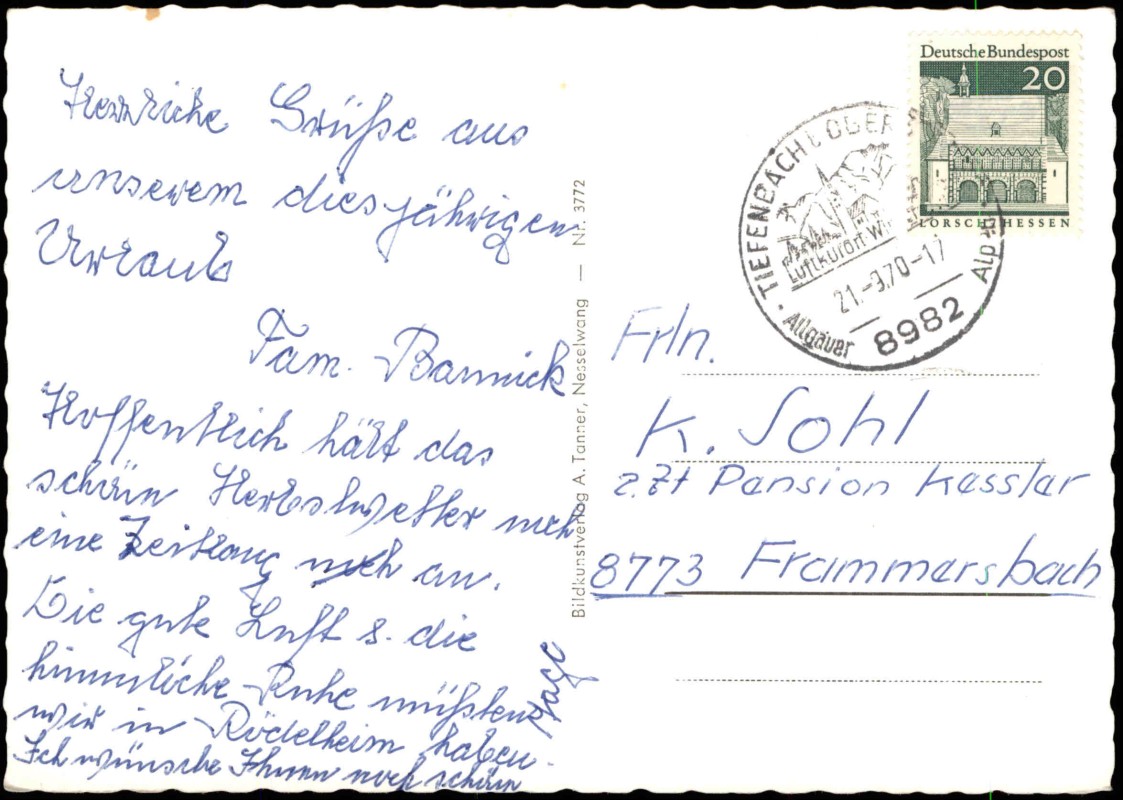 Herzliche Grüße aus
unserem diesjährigen
Urlaub
Fam. Bannick
Hoffentlich hält das
schöin Herbstwetter noch
eine Zeitlang an.
Die gute Luft s. die
himmliche Ruhe müßten
wir in Rödelheim haben.
Ich wünsche Ihnen noch schöin
Tage
Bildkunstverlag A. Tanner, Nesselwang — Nr. 3772
Deutsche Bundespost
20
LORSCH HESSEN
TIEFENBACH b. OBER
Luftkurort
21.-9.70-17
Allgäuer Alp
8982
Frln.
K. Sohl
z.Zt Pension Kessler
8773 Frammersbach